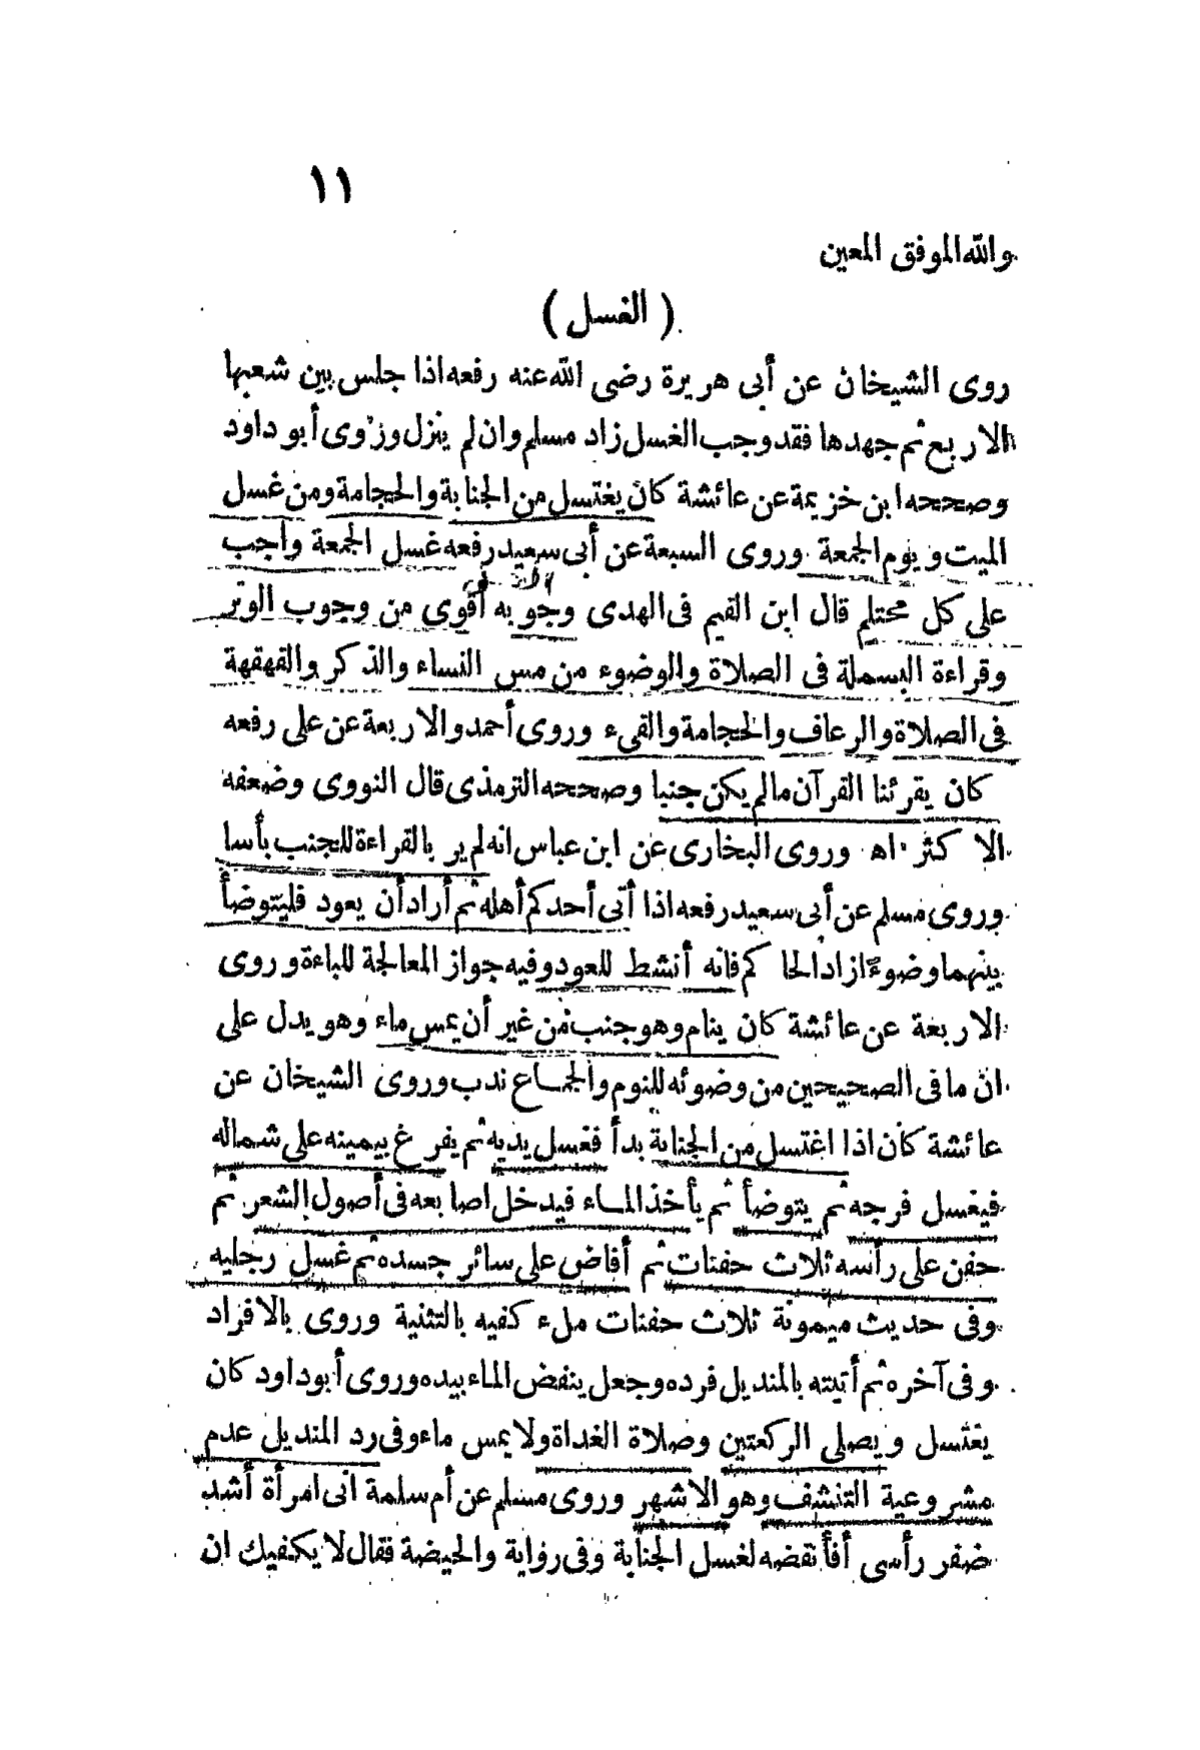 ١١
والله الموفق المعين
( الغسل )
روى الشيخان عن أبى هريرة رضى الله عنه رفعه اذا جلس بين شعبها
الاربع ثم جهدها فقد وجب الغسل زاد مسلم وان لم ينزل وروى أبو داود
وصححه ابن خزيمة عن عائشة كان يغتسل من الجنابة والحجامة ومن غسل
الميت ويوم الجمعة وروى السبعة عن أبى سعيد رفعه غسل الجمعة واجب
على كل محتلم قال ابن القيم فى الهدى وجوبه أقوى من وجوب الوتر
وقراءة البسملة فى الصلاة والوضوء من مس النساء والذكر والقهقهة
فى الصلاة والرعاف والحجامة والقىء وروى أحمد والاربعة عن على رفعه
كان يقرئنا القرآن مالم يكن جنبا وصححه الترمذى قال النووى وضعفه
الاكثر اه وروى البخارى عن ابن عباس انه لم ير بالقراءة للجنب بأسا
وروى مسلم عن أبى سعيد رفعه اذا أتى أحدكم أهله ثم أراد أن يعود فليتوضأ
بينهما وضوءًا زاد الحاكم فانه أنشط للعود وفيه جواز المعالجة للباءة وروى
الاربعة عن عائشة كان ينام وهو جنب من غير أن يمس ماء وهو يدل على
ان ما فى الصحيحين من وضوئه للنوم والجماع ندب وروى الشيخان عن
عائشة كان اذا اغتسل من الجنابة بدأ فغسل يديه ثم يفرغ بيمينه على شماله
فيغسل فرجه ثم يتوضأ ثم يأخذ الماء فيدخل اصابعه فى أصول الشعر ثم
حفن على رأسه ثلاث حفنات ثم أفاض على سائر جسده ثم غسل رجليه
وفى حديث ميمونة ثلاث حفنات ملء كفيه بالتثنية وروى بالافراد
وفى آخره ثم أتيته بالمنديل فرده وجعل ينفض الماء بيده وروى أبو داود كان
يغتسل ويصلى الركعتين وصلاة الغداة ولا يمس ماء وفى رد المنديل عدم
مشروعية التنشف وهو الاشهر وروى مسلم عن أم سلمة انى امرأة أشد
ضفر رأسى أفأنقضه لغسل الجنابة وفى رواية والحيضة فقال لا يكفيك ان